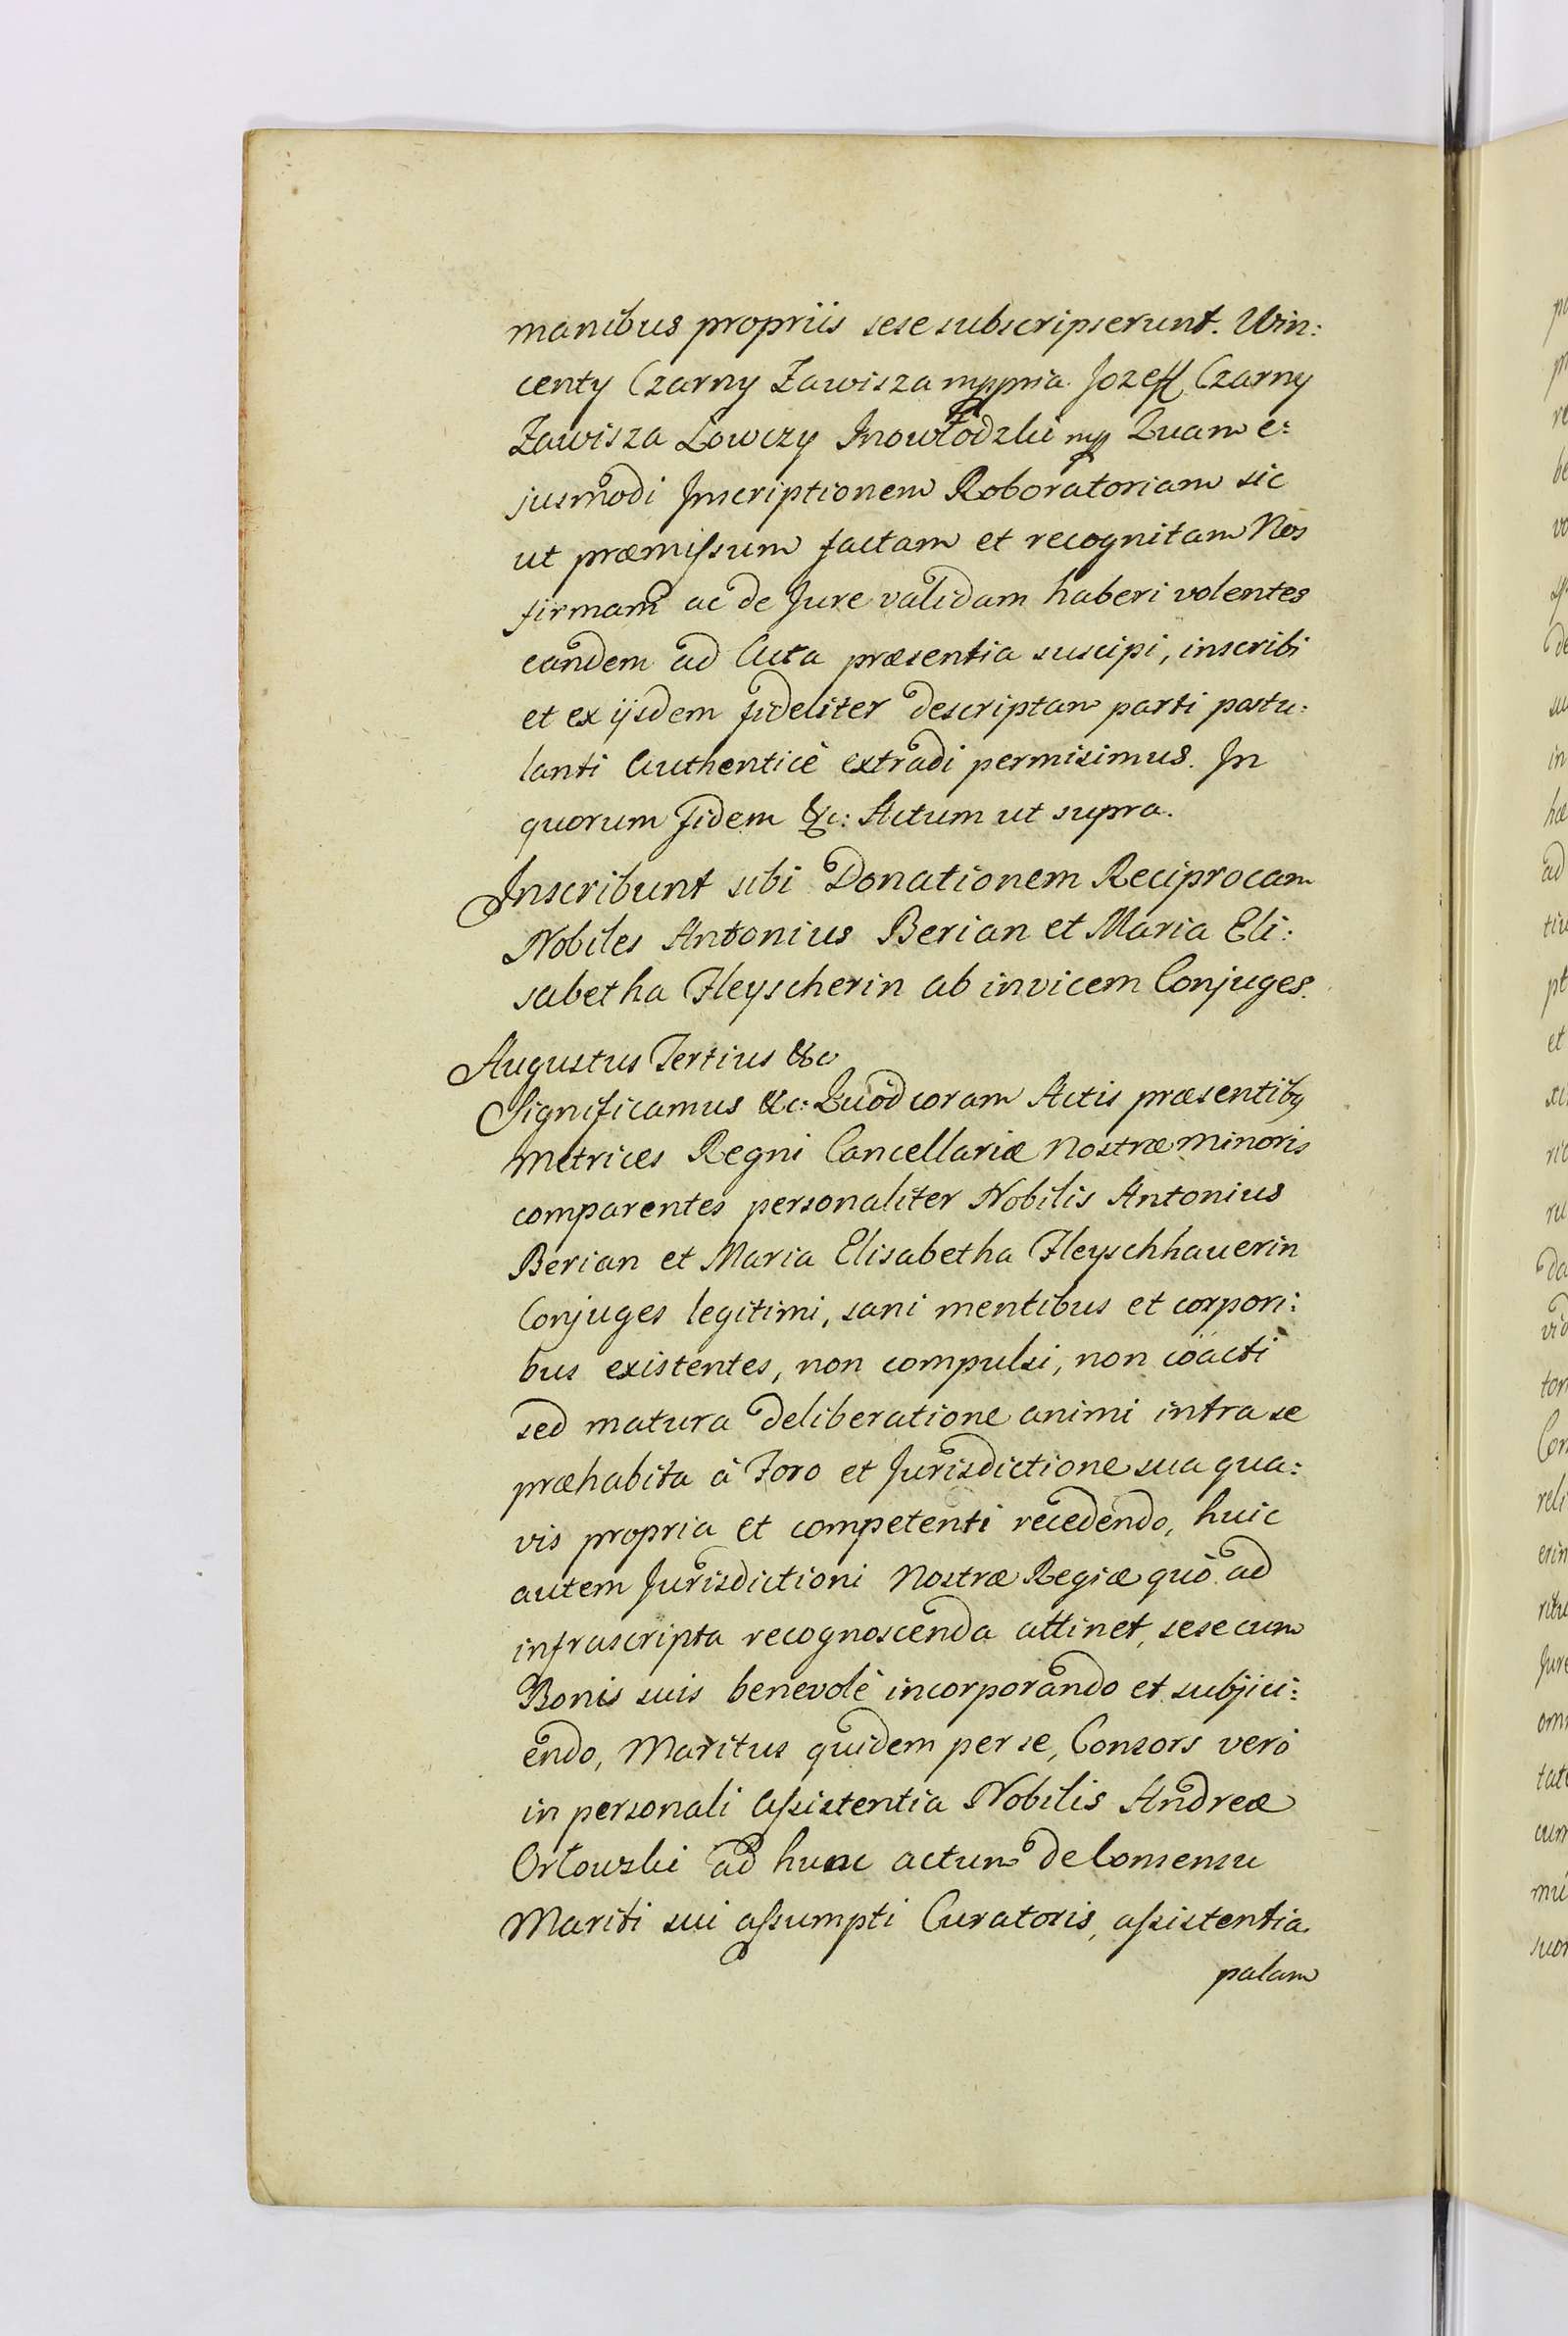 manibus propriis sese subscripserunt. Win:
centy Czarny Zawisza mppria. Jozeff Czarny
Zawisza Łowczy Inowłodzki mp Quam e:
jusmodi Inscriptionem Roboratoriam sic
ut præmissum factam et recognitam Nos
firmam ac de Jure validam haberi volentes
eandem ad Acta præsentia suscipi, inscribi
et ex ijsdem fideliter descriptam parti postu:
lanti Authenticè extradi permisimus. In
quorum fidem &c: Actum ut supra.
Inscribunt sibi Donationem Reciprocam
Nobiles Antonius Berian et Maria Eli:
sabetha Fleyscherin ab invicem Conjuges.
Augustus Tertius &c
Significamus &c: Quod coram Actis præsentibq
Metrices Regni Cancellariæ Nostræ Minoris
comparentes personaliter Nobilis Antonius
Berian et Maria Elisabetha Fleyschhauerin
Conjuges legitimi, sani mentibus et corpori:
bus existentes, non compulsi, non coacti
sed matura deliberatione animi intra se
præhabita à Foro et Jurisdictione sua qua:
vis propria et competenti recedendo, huic
autem Jurisdictioni Nostræ Regiæ quò ad
infrascripta recognoscenda attinet, sese cum
Bonis suis benevolè incorporando et subjici:
endo, Maritus quidem per se, Consors verò
in personali Assistentia Nobilis Andreæ
Orłowski ad hunc actum de Consensu
Mariti sui assumpti Curatoris, assistentia
palam